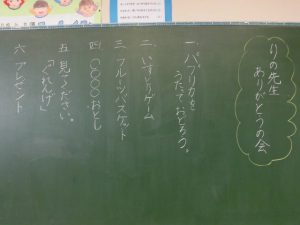 りの先生
ありがとうの会
一 パプリカを
うたっておどろう。
二 いすとりゲーム
三 フルーツバスケット
四 〇〇〇〇おとし
五 見てください。
「ぐれんげ」
六 プレゼント